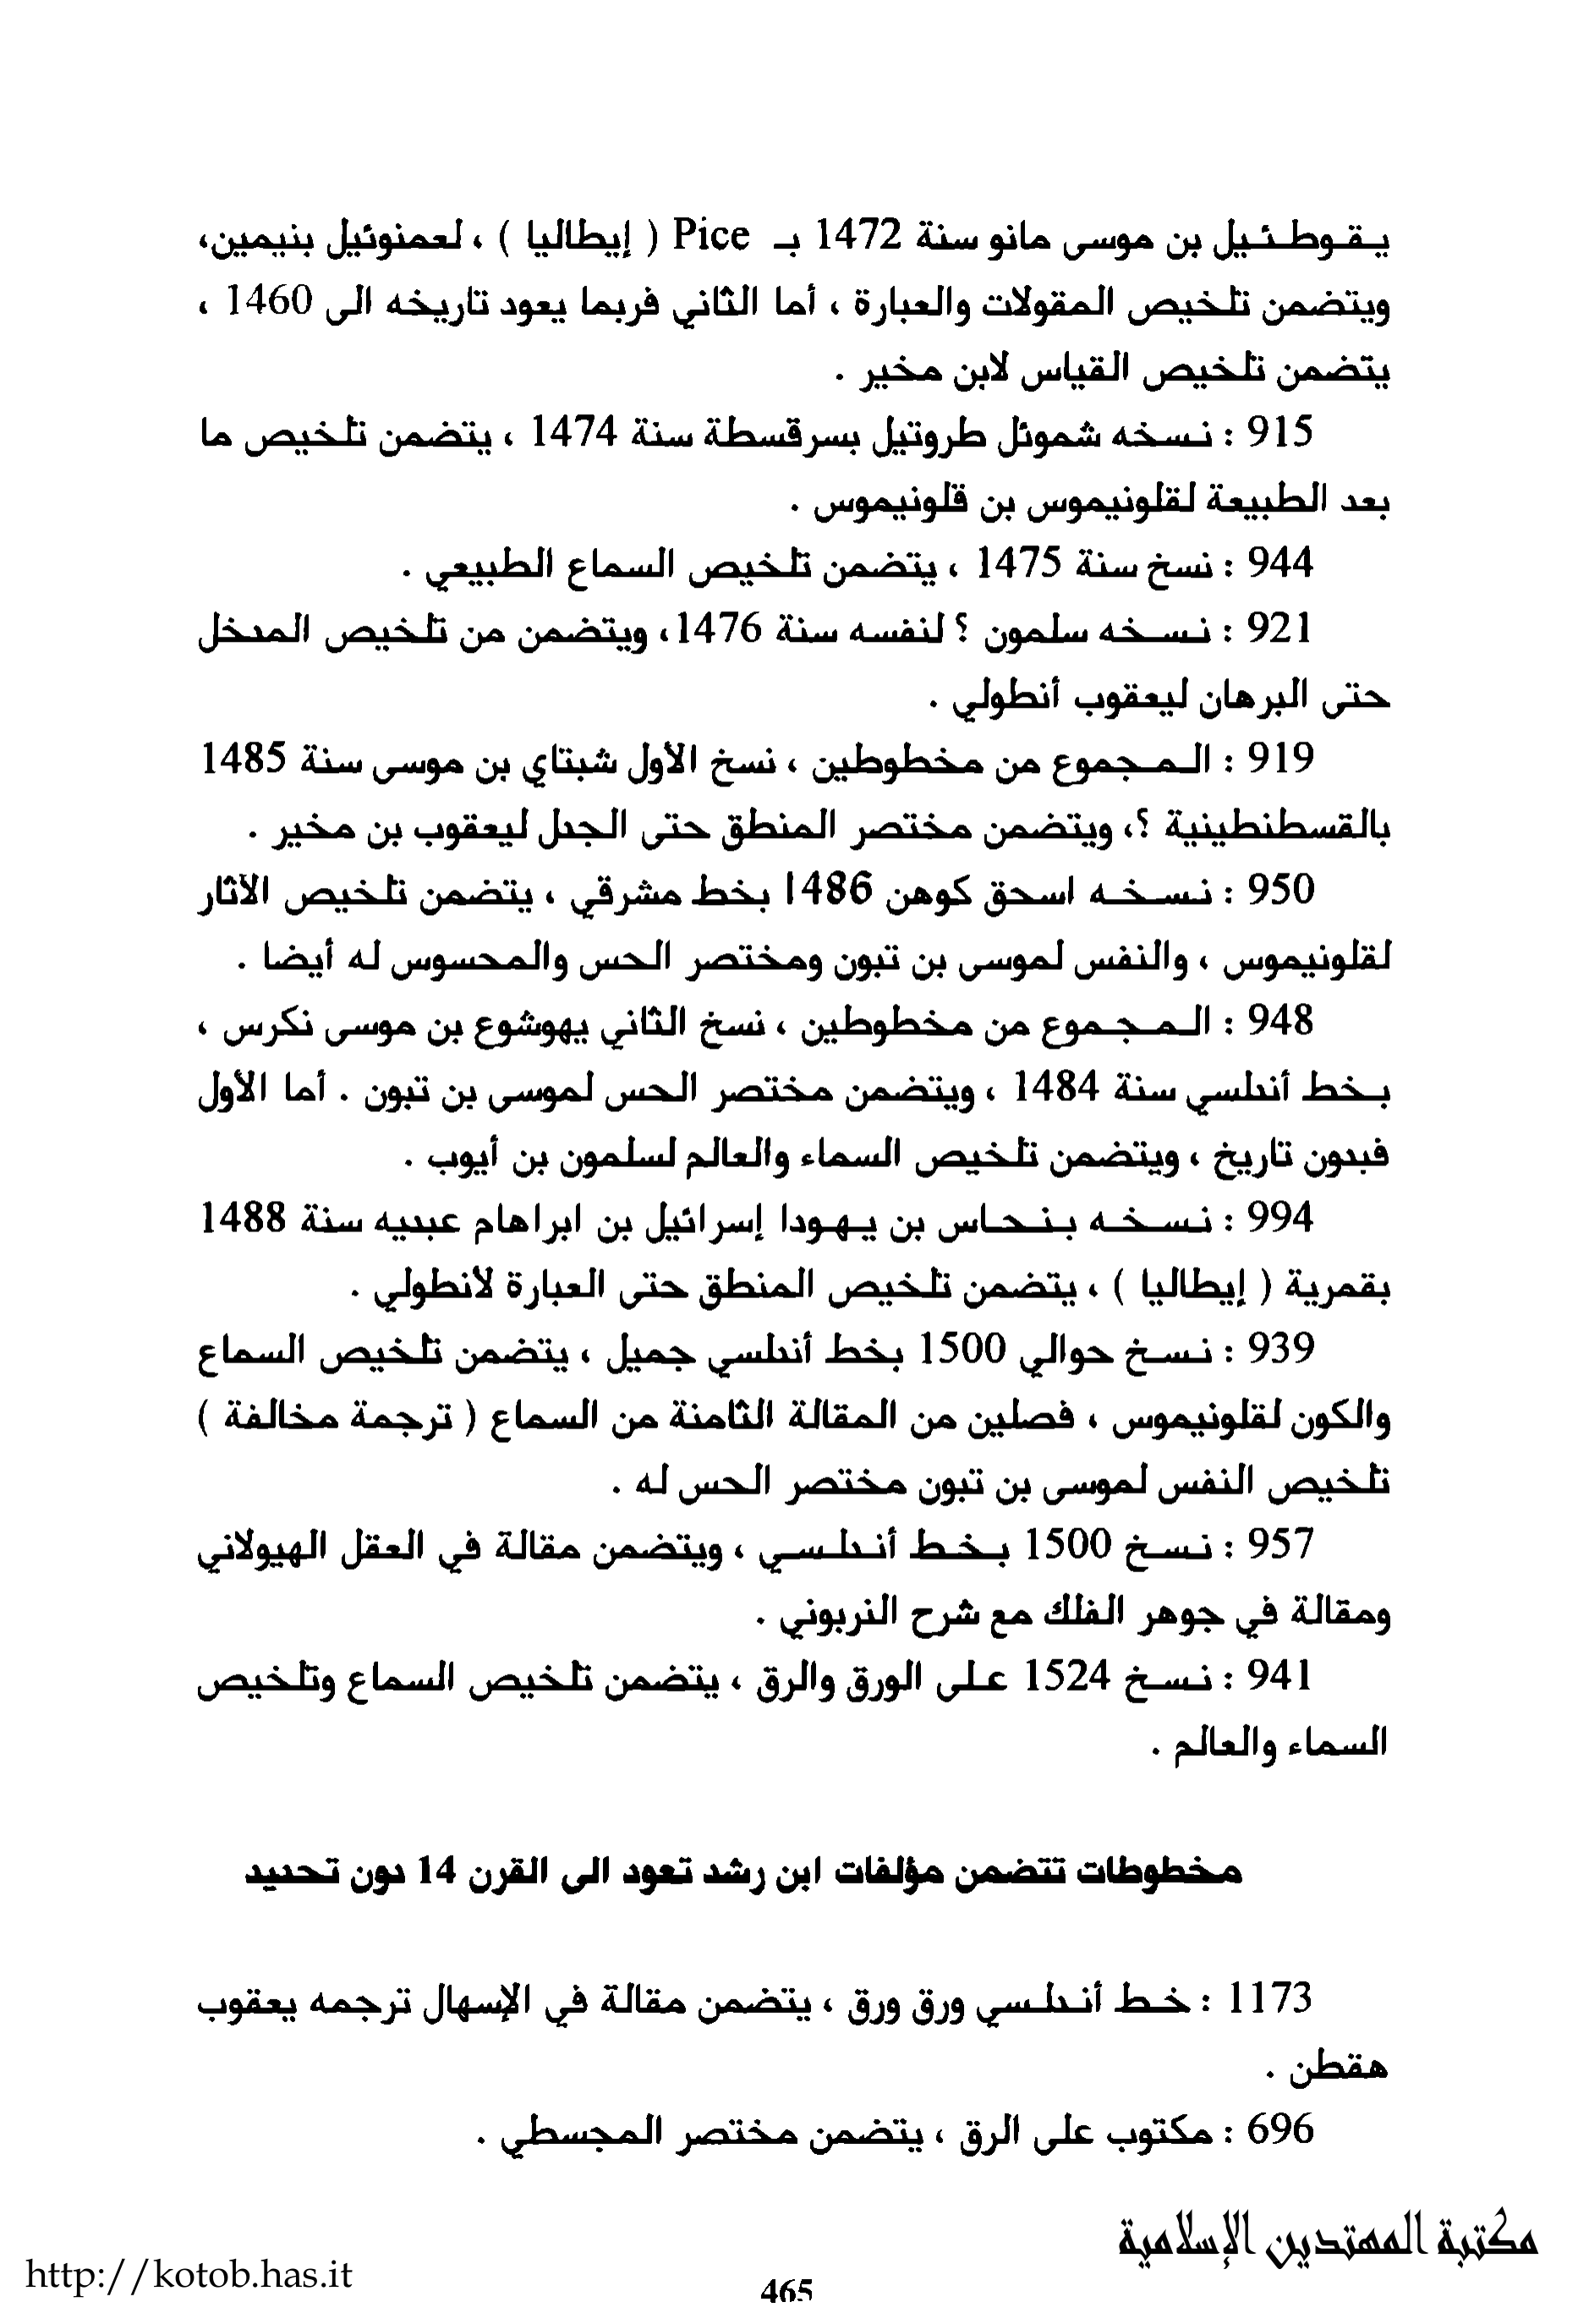 يقوطئيل بن موسى مانو سنة 1472 بـ Pice ( إيطاليا ) ، لعمنوئيل بنيمين،
ويتضمن تلخيص المقولات والعبارة ، أما الثاني فربما يعود تاريخه الى 1460 ،
يتضمن تلخيص القياس لابن مخير .
915 : نسخه شموئل طروتيل بسرقسطة سنة 1474 ، يتضمن تلخيص ما
بعد الطبيعة لقلونيموس بن قلونيموس .
944 : نسخ سنة 1475 ، يتضمن تلخيص السماع الطبيعي .
921 : نسخه سلمون ؟ لنفسه سنة 1476، ويتضمن من تلخيص المدخل
حتى البرهان ليعقوب أنطولي .
919 : المجموع من مخطوطين ، نسخ الأول شبتاي بن موسى سنة 1485
بالقسطنطينية ؟، ويتضمن مختصر المنطق حتى الجدل ليعقوب بن مخير .
950 : نسخه اسحق كوهن 1486 بخط مشرقي ، يتضمن تلخيص الآثار
لقلونيموس ، والنفس لموسى بن تبون ومختصر الحس والمحسوس له أيضا .
948 : المجموع من مخطوطين ، نسخ الثاني يهوشوع بن موسى نكرس ،
بخط أندلسي سنة 1484 ، ويتضمن مختصر الحس لموسى بن تبون . أما الأول
فبدون تاريخ ، ويتضمن تلخيص السماء والعالم لسلمون بن أيوب .
994 : نسخه بنحاس بن يهودا إسرائيل بن ابراهام عبديه سنة 1488
بقمرية ( إيطاليا ) ، يتضمن تلخيص المنطق حتى العبارة لأنطولي .
939 : نسخ حوالي 1500 بخط أندلسي جميل ، يتضمن تلخيص السماع
والكون لقلونيموس ، فصلين من المقالة الثامنة من السماع ( ترجمة مخالفة )
تلخيص النفس لموسى بن تبون مختصر الحس له .
957 : نسخ 1500 بخط أندلسي ، ويتضمن مقالة في العقل الهيولاني
ومقالة في جوهر الفلك مع شرح النربوني .
941 : نسخ 1524 على الورق والرق ، يتضمن تلخيص السماع وتلخيص
السماء والعالم .
مخطوطات تتضمن مؤلفات ابن رشد تعود الى القرن 14 دون تحديد
1173 : خط أندلسي ورق ورق ، يتضمن مقالة في الإسهال ترجمه يعقوب
هقطن .
696 : مكتوب على الرق ، يتضمن مختصر المجسطي .
مكتبة المهتدين الإسلامية
http://kotob.has.it
465